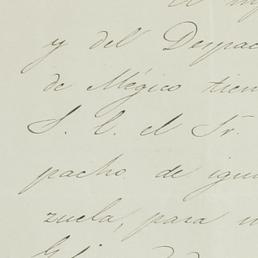 y del Despac
de Mégico tien
S. E. el Sr.
pacho de igua
zuela, para